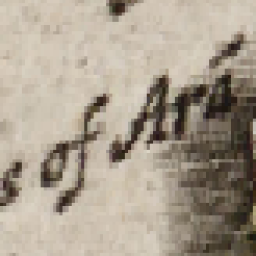 s of Ará